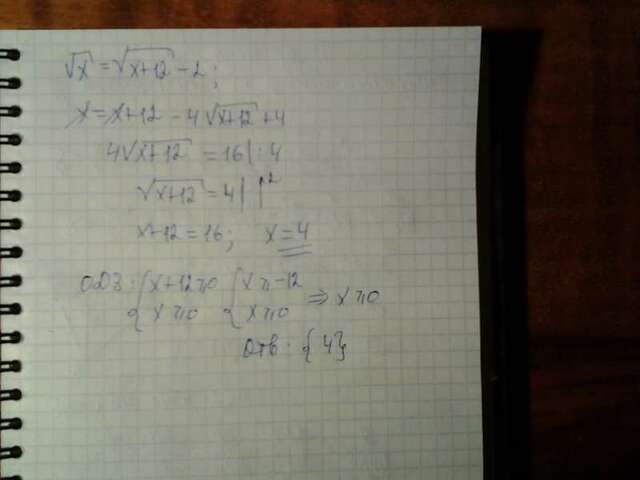 √x = √x+12 - 2;
x = x+12 - 4√x+12 + 4
4√x+12 = 16 | : 4
√x+12 = 4 | |²
x+12 = 16; x = 4
ОДЗ: { x+12 ≥ 0 { x ≥ -12 ⇒ x ≥ 0
{ x ≥ 0 { x ≥ 0
Отв: {4}